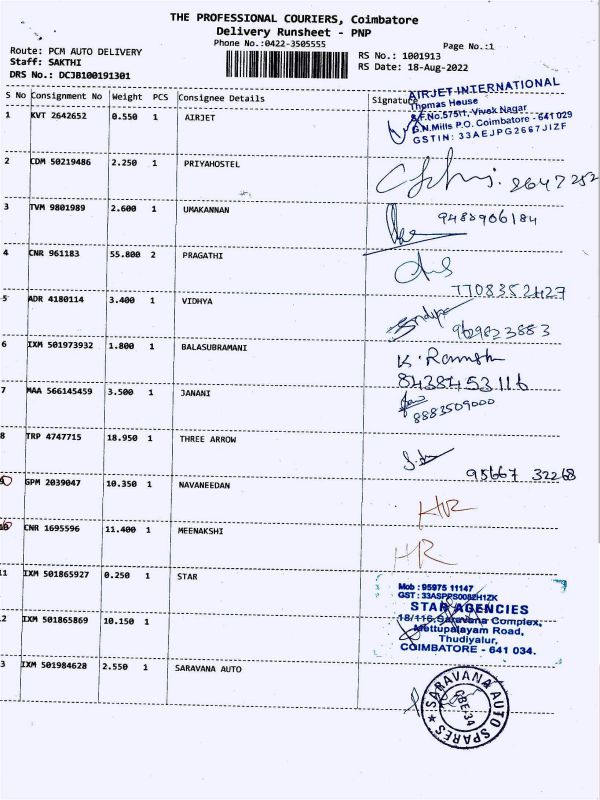 THE PROFESSIONAL COURIERS, Coimbatore
Delivery Runsheet - PNP
Phone No.:0422-3505555
Page No.:1
Route: PCM AUTO DELIVERY
Staff: SAKTHI
DRS No.: DCJB100191301
RS No.: 1001913
RS Date: 18-Aug-2022
S No Consignment No Weight PCS Consignee Details Signature
AIRJET INTERNATIONAL
Thomas House
Vivek Nagar
G.N.Mills P.O. Coimbatore - 641 029
GSTIN: 33AEJPG2667J1ZF
1 KVT 2642652 0.550 1 AIRJET
2 CDM 50219486 2.250 1 PRIYAHOSTEL
8647252
3 TVM 9801989 2.600 1 UMAKANNAN
9488906184
4 CNR 961183 55.800 2 PRAGATHI
7708352427
5 ADR 4180114 3.400 1 VIDHYA
9629623883
6 IXM 501973932 1.800 1 BALASUBRAMANI
K. Ramesh
8438453116
7 MAA 566145459 3.500 1 JANANI
8883509000
8 TRP 4747715 18.950 1 THREE ARROW
95667 32268
9 GPM 2039047 10.350 1 NAVANEEDAN
HR
10 CNR 1695596 11.400 1 MEENAKSHI
HR
11 IXM 501865927 0.250 1 STAR
Mob : 95975 11147
GST : 33ASPPS0082H1ZK
STAR AGENCIES
18/116, Saravana Complex,
Mettupalayam Road,
Thudiyalur,
COIMBATORE - 641 034.
2 IXM 501865869 10.150 1
3 IXM 501984628 2.550 1 SARAVANA AUTO
SARAVANA AUTO SPARES
CBE-34